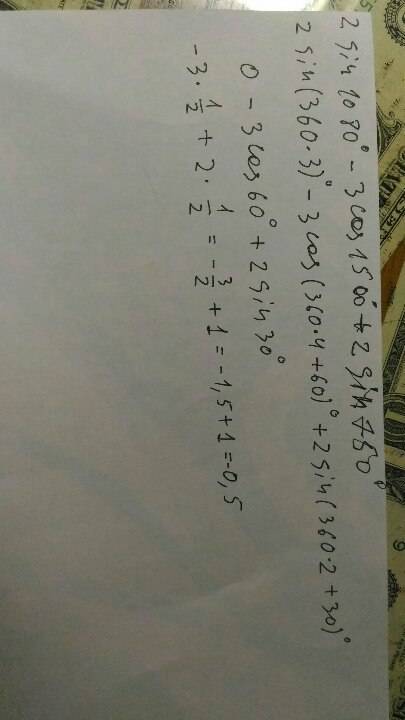 2 sin 1080° - 3 cos 1500° + 2 sin 750°
2 sin(360·3)° - 3 cos (360·4+60)° + 2 sin(360·2+30)°
0 - 3 cos 60° + 2 sin 30°
-3 · 1/2 + 2 · 1/2 = -3/2 + 1 = -1,5+1=-0,5